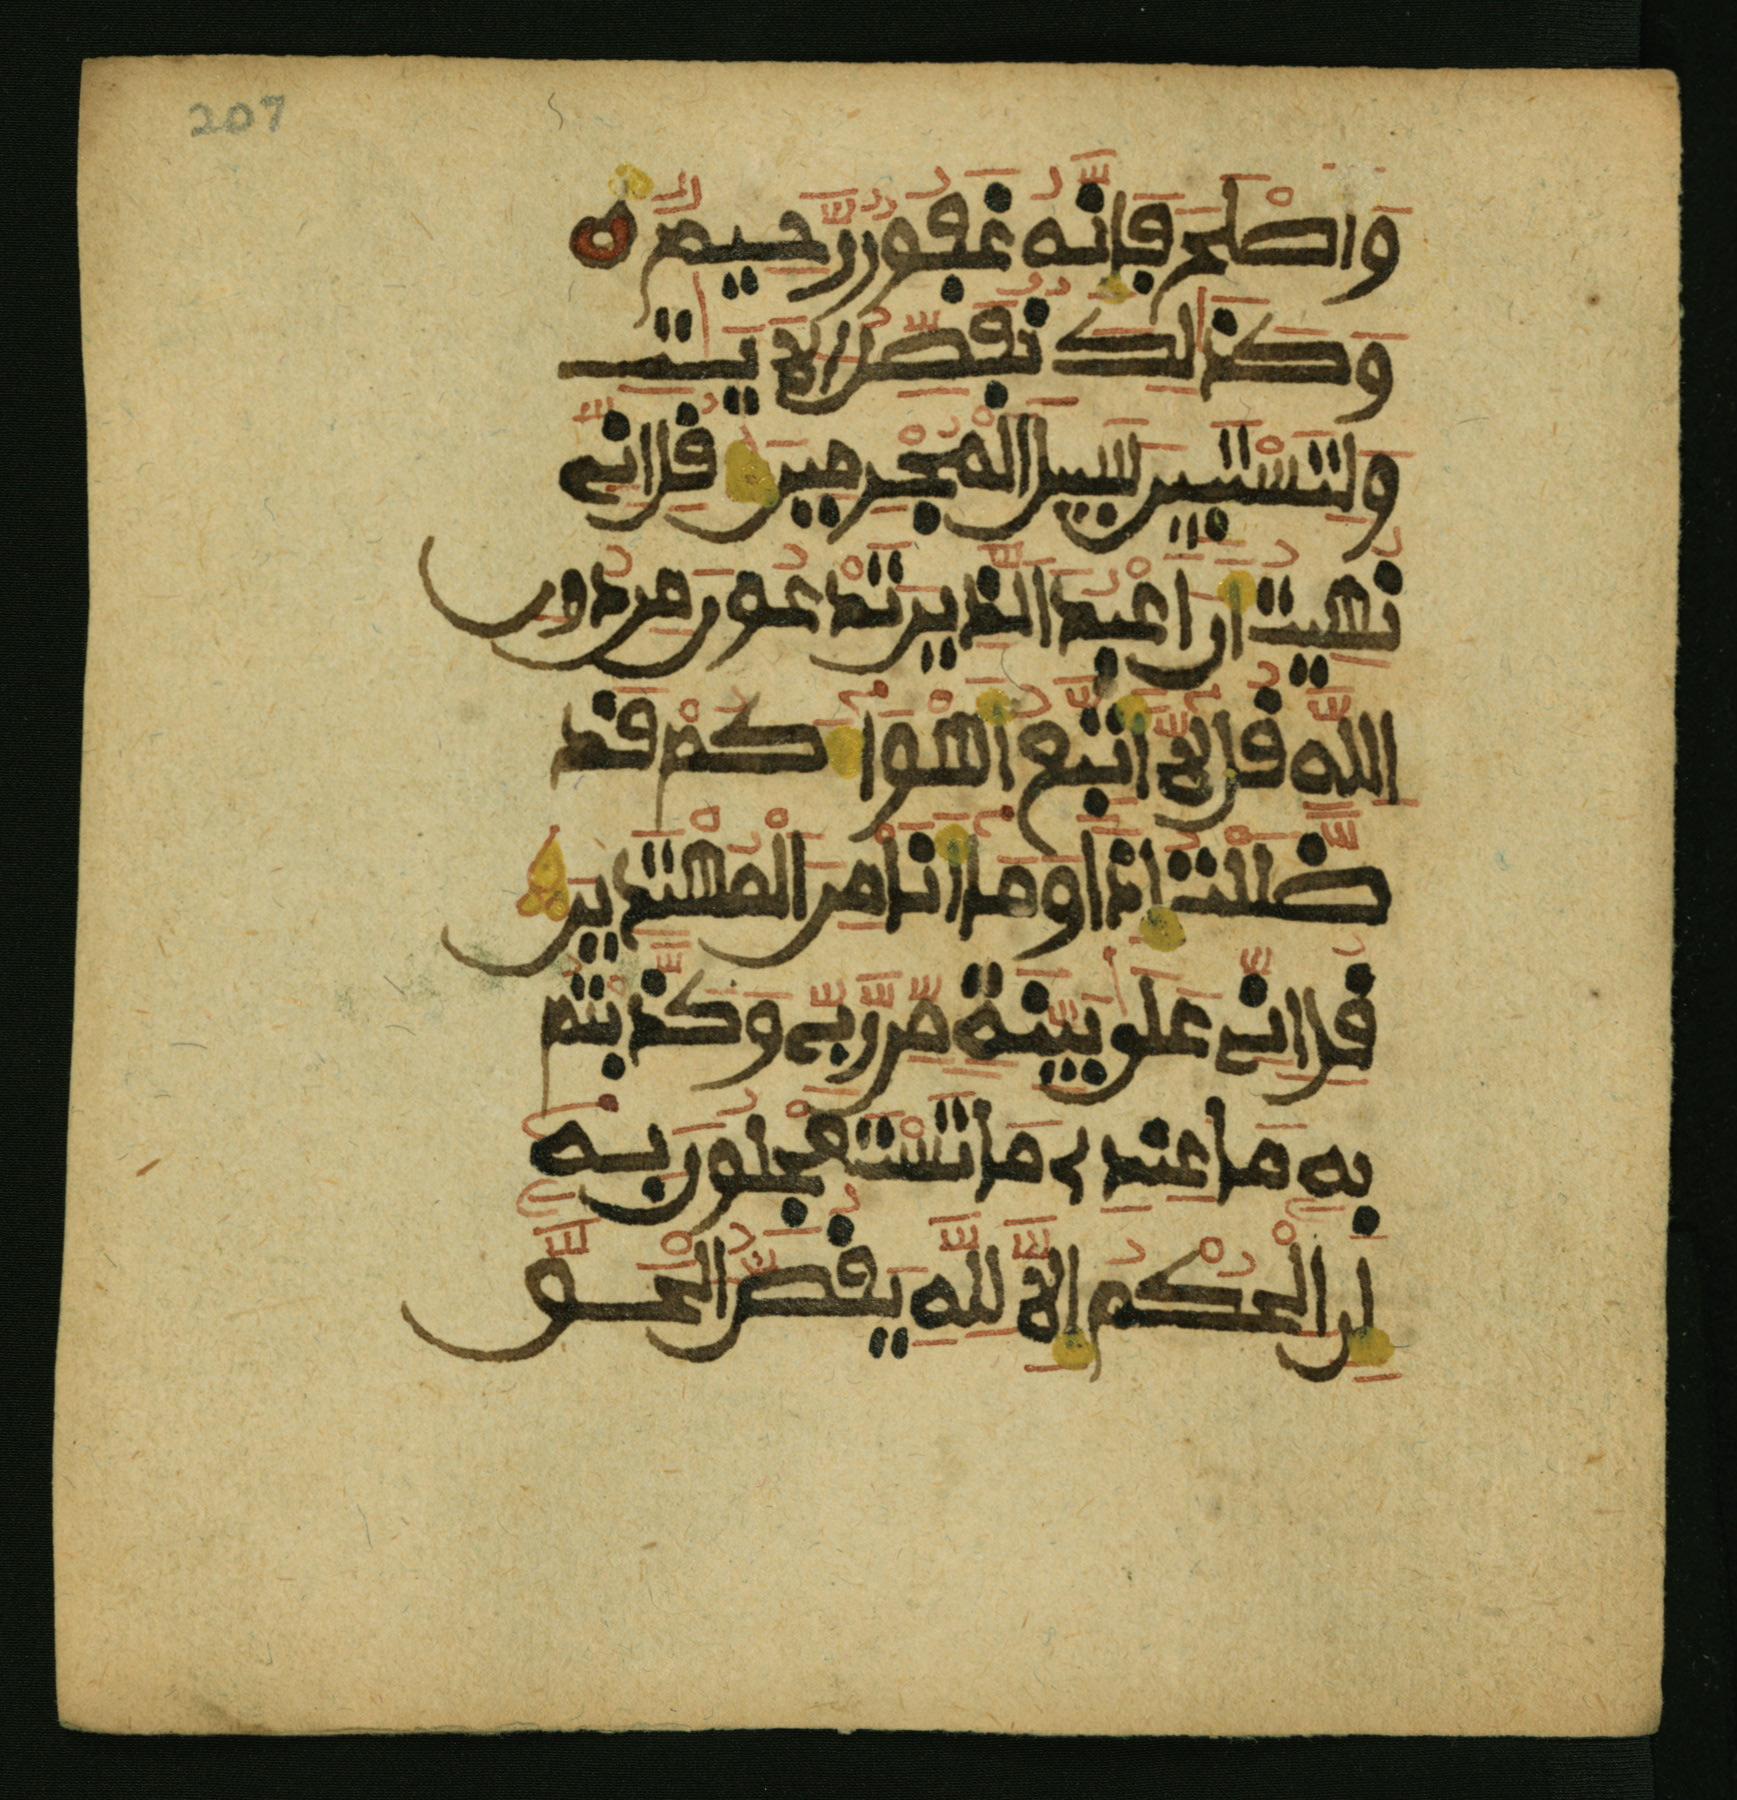 207
وَأَصْلَحَ فَإِنَّهُ غَفُورٌ رَّحِيمٌ
وَكَذَٰلِكَ نُفَصِّلُ الْأَيَٰتِ
وَلِتَسْتَبِينَ سَبِيلَ الْمُجْرِمِينَ قُلْ إِنِّي
نُهِيتُ أَنْ أَعْبُدَ الَّذِينَ تَدْعُونَ مِن دُونِ
اللَّهِ قُل لَّا أَتَّبِعُ أَهْوَاءَكُمْ قَدْ
ضَلَلْتُ إِذًا وَمَا أَنَا مِنَ الْمُهْتَدِينَ
قُلْ إِنِّي عَلَىٰ بَيِّنَةٍ مِّن رَّبِّي وَكَذَّبْتُم
بِهِ مَا عِندِي مَا تَسْتَعْجِلُونَ بِهِ
إِنِ الْحُكْمُ إِلَّا لِلَّهِ يَقُصُّ الْحَقَّ